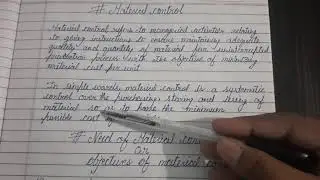 # Material control
Material control refers to managerial activities relating
to giving instructions to ensure maintaining adequate
quality and quantity of material for uninterrupted
production process with the objective of minimizing
material cost per unit.
In simple words, material control is a systematic
control over the purchasing, storing and using of
material so as to have the minimum
possible cost of
# Need of Material con
Or
objectives of material co